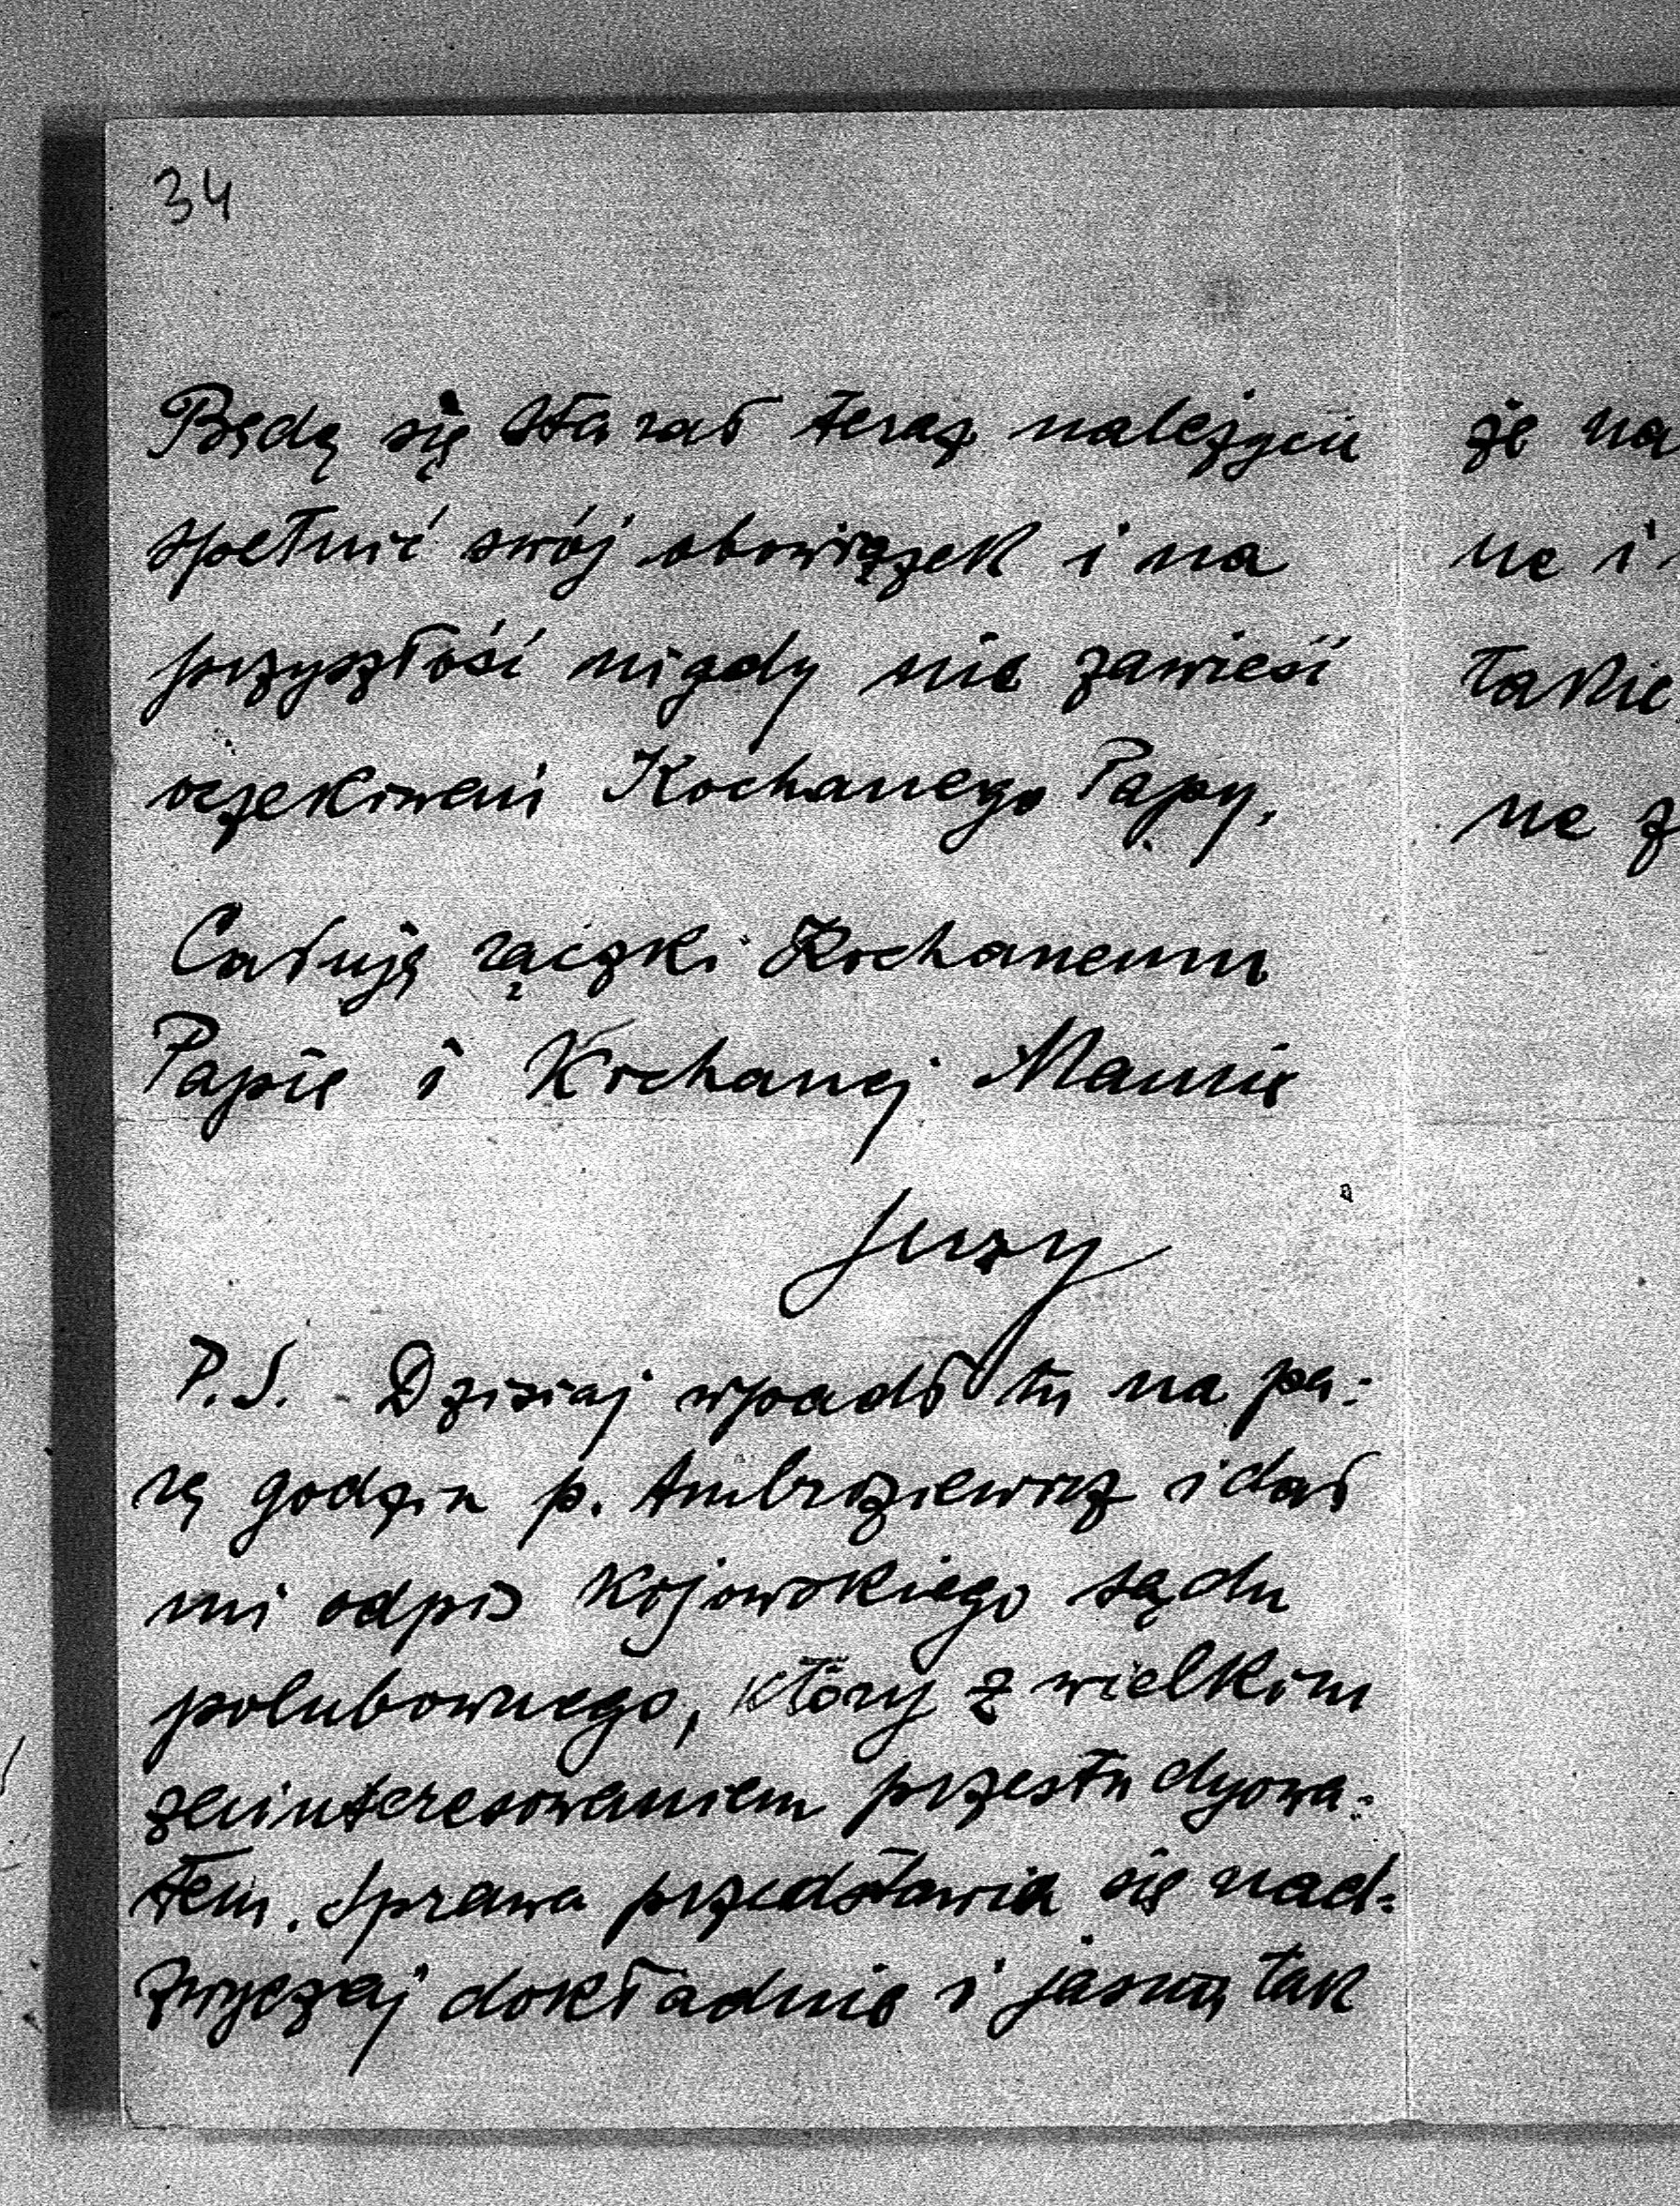 34
Będę się starał teraz należycie
spełnić swój obowiązek i na
przyszłość nigdy nie zawieść
oczekiwań Kochanego Papy.
Całuję rączki Kochanemu
Papie i Kochanej Mamie
Jerzy
P.S. Dzisiaj wpadł tu na pa-
rę godzin p. Ambroziewicz i dał
mi odpis Kijowskiego sądu
polubownego, który z wielkim
zainteresowaniem przestudyowa-
łem. Sprawa przedstawia się nad-
zwyczaj dokładnie i jasno, tak
że na
ne i
takie
ne z